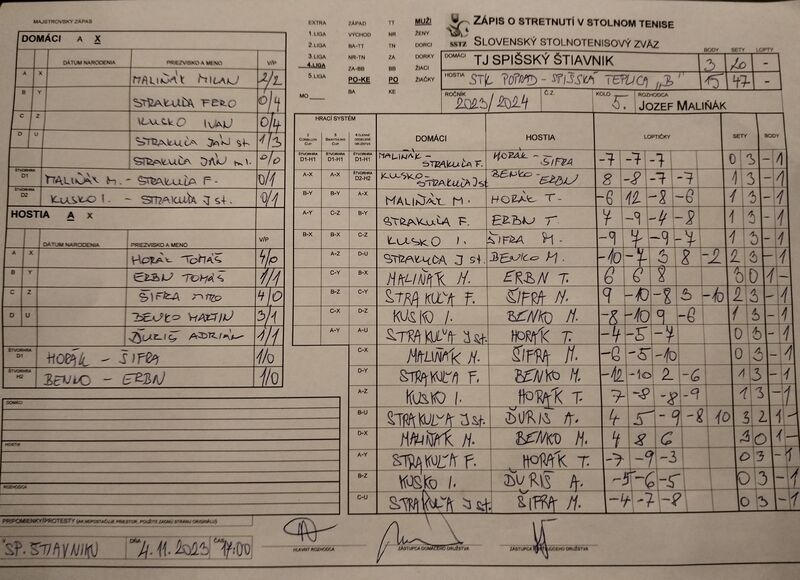 MAJSTROVSKÝ ZÁPAS
DOMÁCI A X
DÁTUM NARODENIA PRIEZVISKO A MENO V/P
A X MALIŇÁK MILAN 2/2
B Y STRAKUĽA FERO 0/4
C Z KUSKO IVAN 0/4
D U STRAKUĽA JÁN st. 1/3
STRAKUĽA JÁN ml. 0/0
ŠTVORHRA D1 MALIŇÁK M. - STRAKUĽA F. 0/1
ŠTVORHRA D2 KUSKO I. - STRAKUĽA J st. 0/1
HOSTIA A X
DÁTUM NARODENIA PRIEZVISKO A MENO V/P
A X HORÁK TOMÁŠ 4/0
B Y ERBN TOMÁŠ 1/1
C Z ŠIFRA MIRO 4/0
D U BENKO MARTIN 3/1
ĎURIŠ ADRIÁN 1/1
ŠTVORHRA D1 HORÁK - ŠIFRA 1/0
ŠTVORHRA H2 BENKO - ERBN 1/0
DOMÁCI
HOSTIA
ROZHODCA
PRIPOMIENKY/PROTESTY (AK NEPOSTAČUJE PRIESTOR, POUŽITE ZADNÚ STRANU ORIGINÁLU)
V SP. ŠTIAVNIKU DŇA 4.11.2023 ČAS 17:00
HLAVNÝ ROZHODCA
ZÁSTUPCA DOMÁCEHO DRUŽSTVA
ZÁSTUPCA HOSŤUJÚCEHO DRUŽSTVA
EXTRA ZÁPAD TT MUŽI
1.LIGA VÝCHOD NR ŽENY
2.LIGA BA-TT TN DORCI
3.LIGA NR-TN ZA DORKY
4.LIGA ZA-BB BB ŽIACI
5.LIGA PO-KE PO ŽIAČKY
MO BA KE
SSTZ
ZÁPIS O STRETNUTÍ V STOLNOM TENISE
SLOVENSKÝ STOLNOTENISOVÝ ZVÄZ
BODY SETY LOPTY
DOMÁCI TJ SPIŠSKÝ ŠTIAVNIK 3 20 -
HOSTIA STK POPRAD - SPIŠSKÁ TEPLICA "B" 15 47 -
ROČNÍK 2023/2024 Č.Z. KOLO 5. ROZHODCA JOZEF MALIŇÁK
HRACÍ SYSTÉM DOMÁCI HOSTIA LOPTIČKY SETY BODY
D1-H1 D1-H1 D1-H1 MALIŇÁK - STRAKUĽA F. HORÁK - ŠIFRA -7 -7 -7 0 3 -1
A-X A-X D2-H2 KUSKO - STRAKUĽA J st. BENKO - ERBN 8 -8 -7 -7 1 3 -1
B-Y B-Y A-X MALIŇÁK M. HORÁK T. -6 12 -8 -6 1 3 -1
A-Y C-Z B-Y STRAKUĽA F. ERBN T. 7 -9 -4 -8 1 3 -1
B-X B-X C-Z KUSKO I. ŠIFRA M. -9 7 -9 -7 1 3 -1
A-Z D-U STRAKUĽA J st. BENKO M. -10 -7 3 8 -2 2 3 -1
C-Y B-X MALIŇÁK M. ERBN T. 6 6 8 3 0 1 -
B-Z C-Y STRAKUĽA F. ŠIFRA M. 9 -10 -8 3 -10 2 3 -1
C-X D-Z KUSKO I. BENKO M. -8 -10 9 -6 1 3 -1
A-Y A-U STRAKUĽA J st. HORÁK T. -4 -5 -7 0 3 -1
C-X MALIŇÁK M. ŠIFRA M. -6 -5 -10 0 3 -1
D-Y STRAKUĽA F. BENKO M. -12 -10 2 -6 1 3 -1
A-Z KUSKO I. HORÁK T. 7 -8 -8 -9 1 3 -1
B-U STRAKUĽA J st. ĎURIŠ A. 4 5 -9 -8 10 3 2 1 -
D-X MALIŇÁK M. BENKO M. 4 8 6 3 0 1 -
A-Y STRAKUĽA F. HORÁK T. -7 -9 -3 0 3 -1
B-Z KUSKO I. ĎURIŠ A. -5 -6 -5 0 3 -1
C-U STRAKUĽA J st. ŠIFRA M. -4 -7 -8 0 3 -1